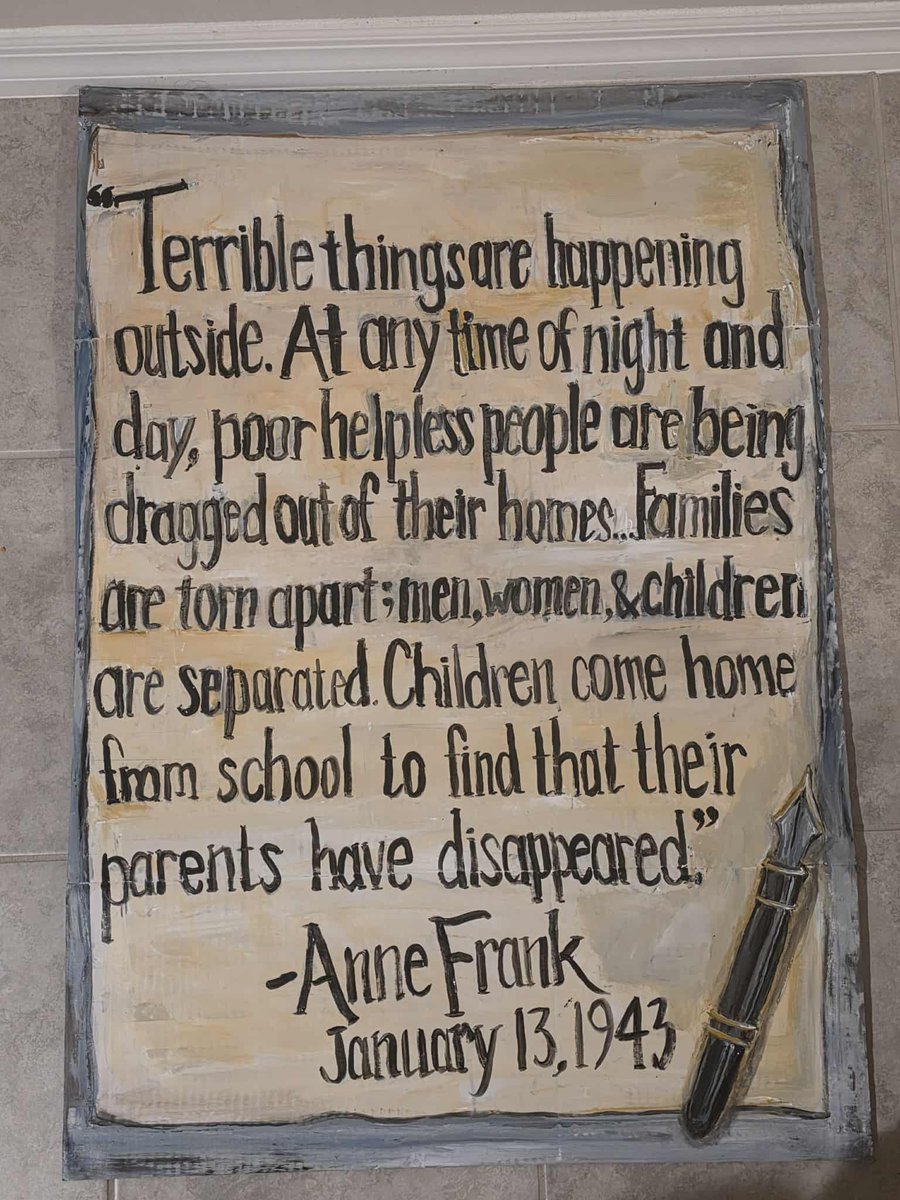 “Terrible things are happening
outside. At any time of night and
day, poor helpless people are being
dragged out of their homes...Families
are torn apart; men, women, & children
are separated. Children come home
from school to find that their
parents have disappeared.”
-Anne Frank
January 13, 1943